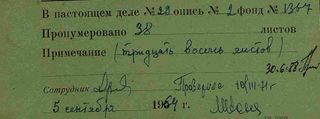 В настоящем деле № 20 опись № 2 фонд № 1367
Пронумеровано 38 листов
Примечание (тридцать восемь листов)
30.6.88
Сотрудник Проверено 10/III-71г
5 сентября 1964